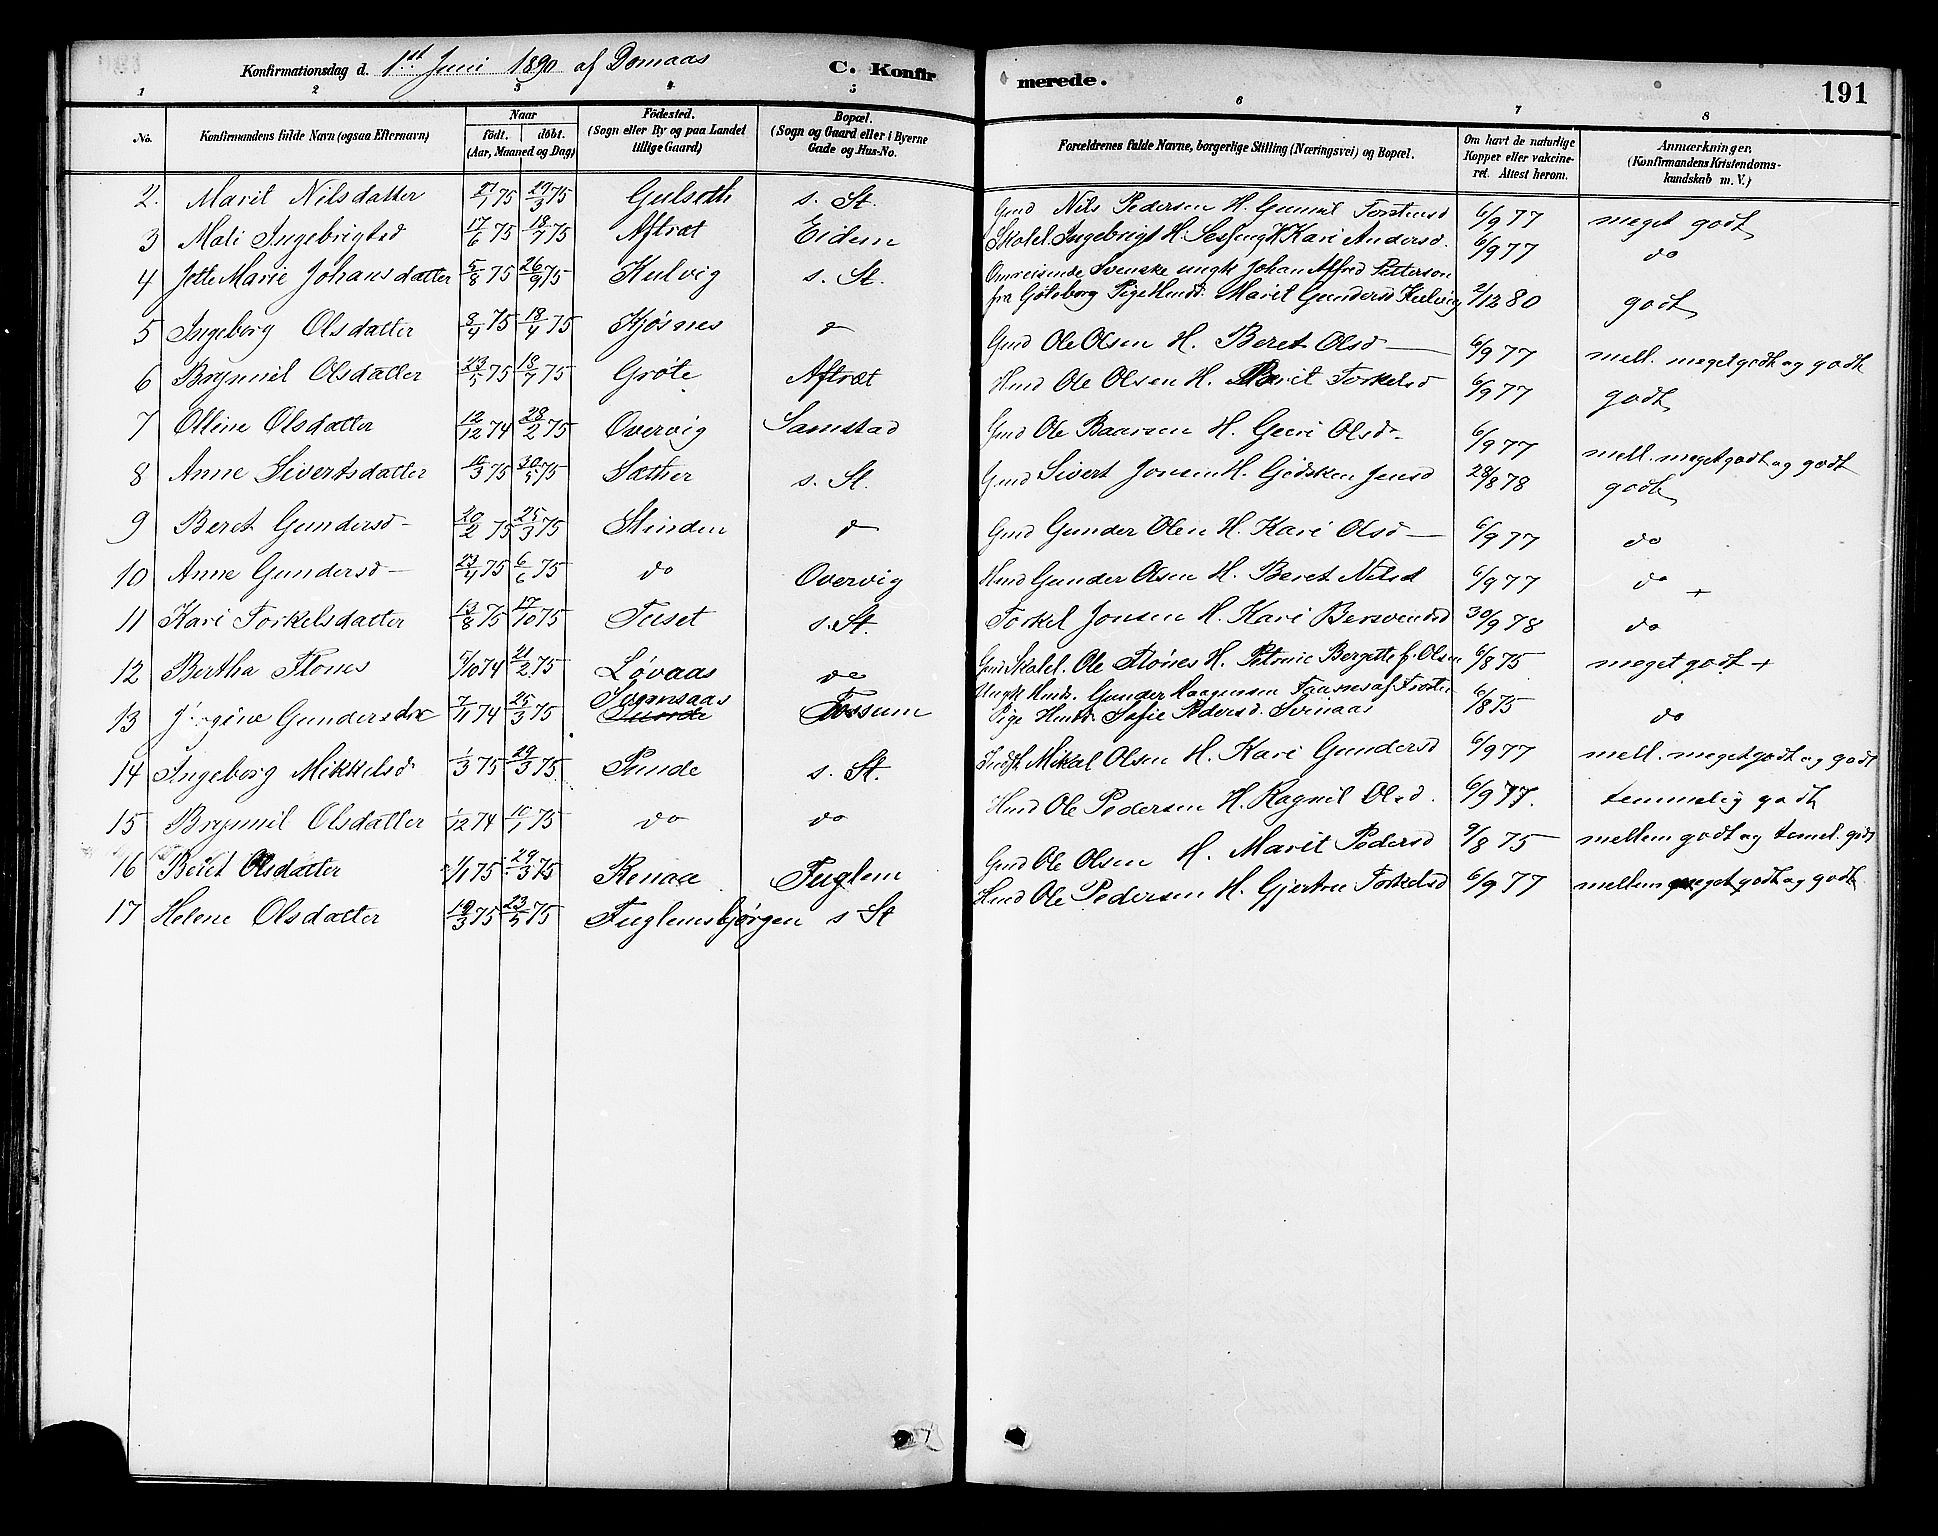 Konfirmationsdag d. 1st Juni 1890 af Domaas C. Konfirmerede. 191
1 2 3 4 5 6 7 8
No. Konfirmandens fulde Navn (ogsaa Efternavn) Naar födt. döbt. (Aar, Maaned og Dag) Födested. (Sogn eller By og paa Landet tillige Gaard) Bopæl. (Sogn og Gaard eller i Byerne Gade og Hus-No. Forældrenes fulde Navne, borgerlige Stilling (Næringsvei) og Bopæl. Om havt de naturlige Kopper eller vakcineret. Attest herom. Anmærkninger. (Konfirmandens Kristendomskundskab m. V.)
2. Marit Nilsdatter 27/1 75 29/3 75 Gulseth s. St. Gmd Nils Pedersen H. Gunnil Torstensd 6/9 77 meget godt
3 Mali Ingebrigtsd 17/6 75 18/7 75 Aftræt Eidem Skolel. Ingebrigt H. Kari Andersd. 6/9 77 do
4 Jette Marie Johansdatter 5/8 75 26/9 75 Kulvig s. St. Omreisende Svenske ungk Johan Alfred Petterson
fra Gøteborg Pige Marit Gundersd Kulvig 2/12 80 godt
5 Ingeborg Olsdatter 3/4 75 18/4 75 Kjøsnes d Gmd Ole Olsen H. Beret Olsd 6/9 77 mell. meget godt og godt
6 Brynnil Olsdatter 23/5 75 18/7 75 Grøte Aftræt Hmd Ole Olsen H. Marit Torkelsd 6/9 77 godt
7 Olline Olsdatter 12/12 74 28/2 75 Overvig Samstad Gmd Ole Baarsen H. Guri Olsd 6/9 77 mell. meget godt og godt
8 Anne Sivertsdatter 16/3 75 30/5 75 Sæther s. St. Gmd Sivert Jonsen H. Gidsken Jensd 28/8 78 godt
9 Beret Gundersd 20/2 75 25/3 75 Stinden d Gmd Gunder Olen H. Kari Olsd 6/9 77 do
10 Anne Gundersd 23/4 75 6/6 75 do Overvig Hmd Gunder Olsen H. Beret Nilsd 6/9 77 do +
11 Kari Torkelsdatter 13/8 75 17/10 75 Tuset s. St. Torkel Jonsen H. Kari Bersvendsd 30/9 78 do
12 Bertha Flønes 5/10 74 21/2 75 Løvaas do Gmd Skolel. Ole Flønes H. Petronie Bergette f. Olsen 6/8 75 meget godt +
13 Gundersdtr 7/11 74 25/3 75 Fossum Ungk Gunder Haagensen af Frosten
Pige Sofie Pedersd. 6/8 75 do
14 Ingeborg Mikkelsd 1/3 75 29/3 75 Runde s. St. Indst Mikal Olsen H. Kari Gundersd 6/9 77 mell. meget godt og godt
15 Brynnil Olsdatter 1/12 74 10/1 75 do do Hmd Ole Pedersen H. Ragnil Olsd. 6/9 77. temmelig godt
16 Beret Olsdatter 2/1 75 29/3 75 Renaa Fuglem Gmd Ole Olsen H. Marit Pedersd 9/8 75 mellem godt og temel. godt
17 Helene Olsdatter 19/3 75 23/5 75 Fuglemsbjørgen s St Hmd Ole Pedersen H. Gjertru Torkelsd 6/9 77 mellem meget godt og godt